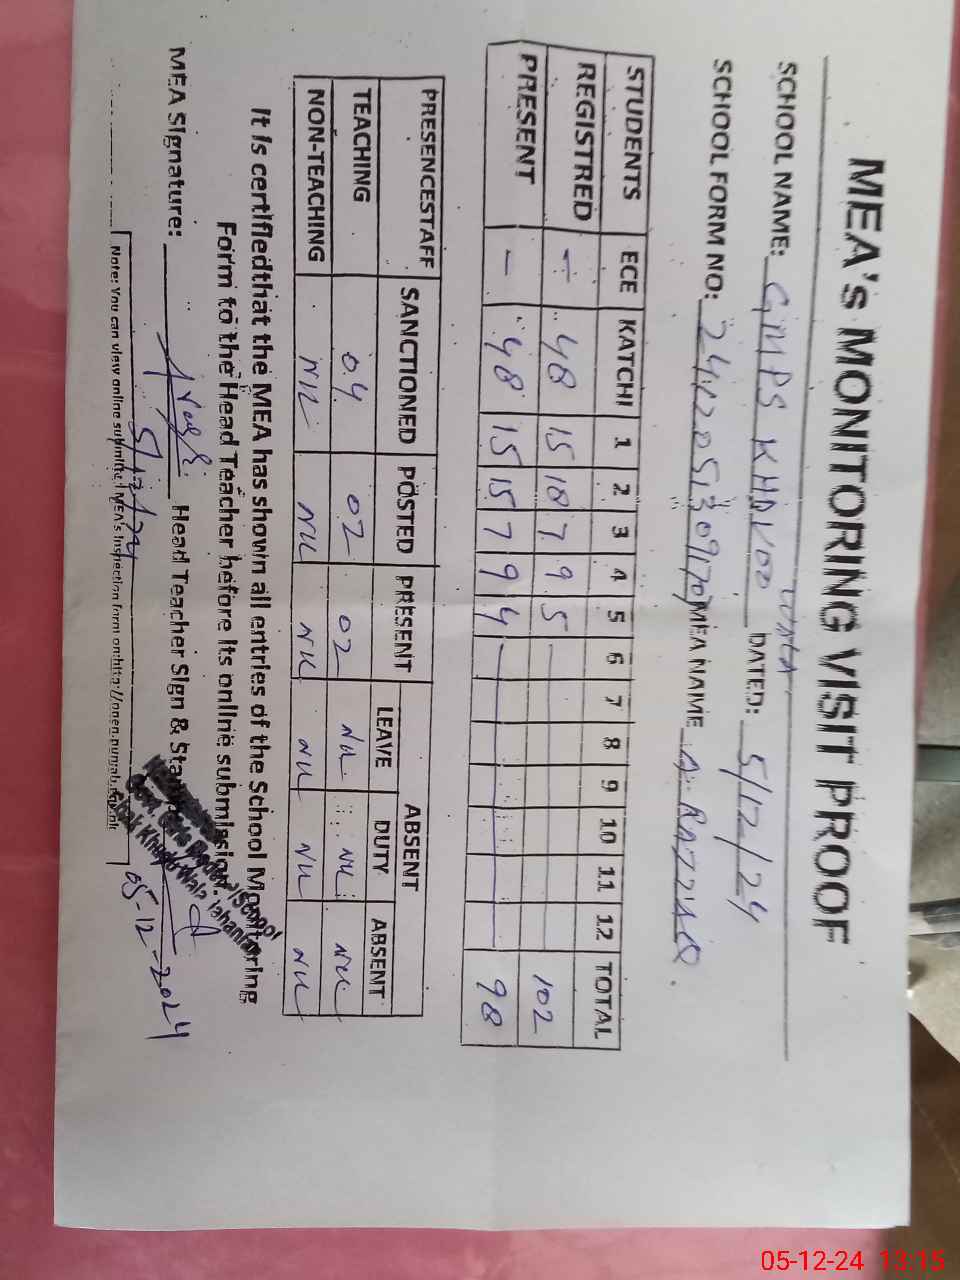 MEA's MONITORING VISIT PROOF
SCHOOL NAME: GMPS KHDVOO WALA DATED: 5/12/24
SCHOOL FORM NO: MEA NAME A. RAZZAQ.
STUDENTS ECE KATCHI 1 2 3 4 5 6 7 8 9 10 11 12 TOTAL
REGISTRED — 48 15 18 7 9 5 102
PRESENT — 48 15 15 7 9 4 98
PRESENCESTAFF SANCTIONED POSTED PRESENT ABSENT
LEAVE DUTY ABSENT
TEACHING 04 02 02 NIL NIL NIL
NON-TEACHING NIL NIL NIL NIL NIL NIL
It is certifiedthat the MEA has shown all entries of the School Monitoring
Form to the Head Teacher before its online submission.
MEA Signature: Head Teacher Sign &
5/12/24
05-12-2024
Note: You can view online submitted MEA's Inspection form on:http://open.punjab.gov.pk
05-12-24 13:15